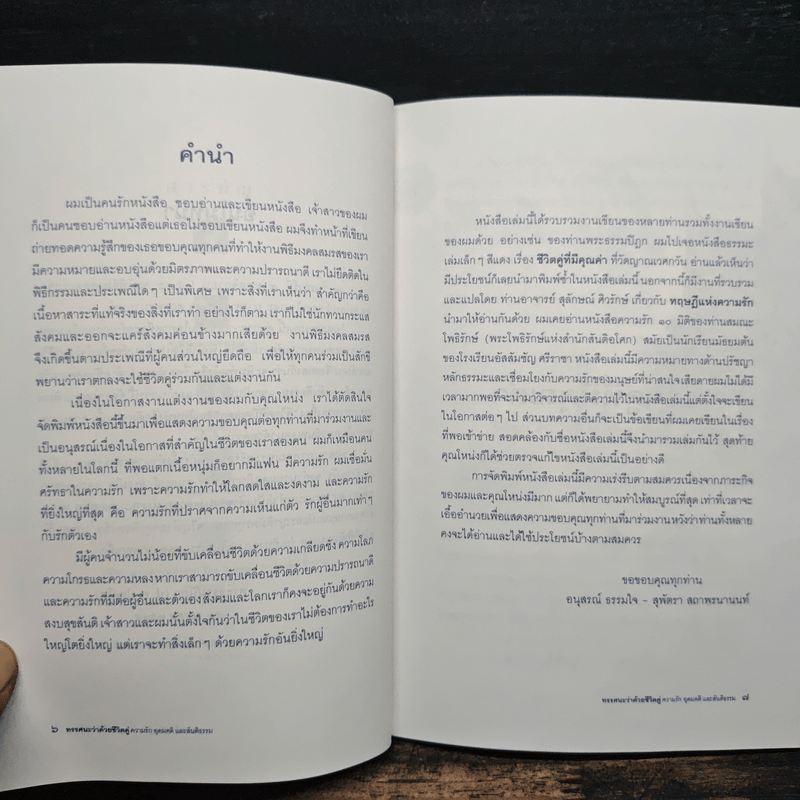 คำนำ
ผมเป็นคนรักหนังสือ ชอบอ่านและเขียนหนังสือ เจ้าสาวของผม
ก็เป็นคนชอบอ่านหนังสือแต่เธอไม่ชอบเขียนหนังสือ ผมจึงทำหน้าที่เขียน
ถ่ายทอดความรู้สึกของเธอขอบคุณทุกคนที่ทำให้งานพิธีมงคลสมรสของเรา
มีความหมายและอบอุ่นด้วยมิตรภาพและความปรารถนาดี เราไม่ยึดติดใน
พิธีกรรมและประเพณีใด ๆ เป็นพิเศษ เพราะสิ่งที่เราเห็นว่า สำคัญกว่าคือ
เนื้อหาสาระที่แท้จริงของสิ่งที่เราทำ อย่างไรก็ตาม เราก็ไม่ใช่นักทวนกระแส
สังคมและออกจะแคร์สังคมค่อนข้างมากเสียด้วย งานพิธีมงคลสมรส
จึงเกิดขึ้นตามประเพณีที่ผู้คนส่วนใหญ่ยึดถือ เพื่อให้ทุกคนร่วมเป็นสักขี
พยานว่าเราตกลงจะใช้ชีวิตคู่ร่วมกันและแต่งงานกัน
เนื่องในโอกาสงานแต่งงานของผมกับคุณโหน่ง เราได้ตัดสินใจ
จัดพิมพ์หนังสือนี้ขึ้นมาเพื่อแสดงความขอบคุณต่อทุกท่านที่มาร่วมงานและ
เป็นอนุสรณ์เนื่องในโอกาสที่สำคัญในชีวิตของเราสองคน ผมก็เหมือนคน
ทั้งหลายในโลกนี้ ที่พอแตกเนื้อหนุ่มก็อยากมีแฟน มีความรัก ผมเชื่อมั่น
ศรัทธาในความรัก เพราะความรักทำให้โลกสดใสและงดงาม และความรัก
ที่ยิ่งใหญ่ที่สุด คือ ความรักที่ปราศจากความเห็นแก่ตัว รักผู้อื่นมากเท่าๆ
กับรักตัวเอง
มีผู้คนจำนวนไม่น้อยที่ขับเคลื่อนชีวิตด้วยความเกลียดชัง ความโลภ
ความโกรธและความหลง หากเราสามารถขับเคลื่อนชีวิตด้วยความปรารถนาดี
และความรักที่มีต่อผู้อื่นและตัวเอง สังคมและโลกเราก็คงจะอยู่กันด้วยความ
สงบสุขสันติ เจ้าสาวและผมนั้นตั้งใจกันว่าในชีวิตของเราไม่ต้องการทำอะไร
ใหญ่โตยิ่งใหญ่ แต่เราจะทำสิ่งเล็ก ๆ ด้วยความรักอันยิ่งใหญ่
๖ ทรรศนะว่าด้วยชีวิตคู่ ความรัก อุดมคติ และสันติธรรม
หนังสือเล่มนี้ได้รวบรวมงานเขียนของหลายท่านรวมทั้งงานเขียน
ของผมด้วย อย่างเช่น ของท่านพระธรรมปิฎก ผมไปเจอหนังสือธรรมะ
เล่มเล็ก ๆ สีแดง เรื่อง ชีวิตคู่ที่มีคุณค่า ที่วัดญาณเวศกวัน อ่านแล้วเห็นว่า
มีประโยชน์ก็เลยนำมาพิมพ์ซ้ำในหนังสือเล่มนี้ นอกจากนี้ก็มีงานที่รวบรวม
และแปลโดย ท่านอาจารย์ สุลักษณ์ ศิวรักษ์ เกี่ยวกับ ทฤษฎีแห่งความรัก
นำมาให้อ่านกันด้วย ผมเคยอ่านหนังสือความรัก ๑๐ มิติของท่านสมณะ
โพธิรักษ์ (พระโพธิรักษ์แห่งสำนักสันติอโศก) สมัยเป็นนักเรียนมัธยมต้น
ของโรงเรียนอัสสัมชัญ ศรีราชา หนังสือเล่มนี้มีความหมายทางด้านปรัชญา
หลักธรรมและเชื่อมโยงกับความรักของมนุษย์ที่น่าสนใจ เสียดายผมไม่ได้มี
เวลามากพอที่จะนำมาวิจารณ์และตีความไว้ในหนังสือเล่มนี้แต่ตั้งใจจะเขียน
ในโอกาสต่อๆ ไป ส่วนบทความอื่นก็จะเป็นข้อเขียนที่ผมเคยเขียนในเรื่อง
ที่พอเข้าข่าย สอดคล้องกับชื่อหนังสือเล่มนี้จึงนำมารวมเล่มกันไว้ สุดท้าย
คุณโหน่งก็ได้ช่วยตรวจแก้ไขหนังสือเล่มนี้เป็นอย่างดี
การจัดพิมพ์หนังสือเล่มนี้มีความเร่งรีบตามสมควรเนื่องจากภาระกิจ
ของผมและคุณโหน่งมีมาก แต่ก็ได้พยายามทำให้สมบูรณ์ที่สุด เท่าที่เวลาจะ
เอื้ออำนวยเพื่อแสดงความขอบคุณทุกท่านที่มาร่วมงาน หวังว่าท่านทั้งหลาย
คงจะได้อ่านและได้ใช้ประโยชน์บ้างตามสมควร
ขอขอบคุณทุกท่าน
อนุสรณ์ ธรรมใจ - สุพัตรา สถาพรนานนท์
ทรรศนะว่าด้วยชีวิตคู่ ความรัก อุดมคติ และสันติธรรม ๗